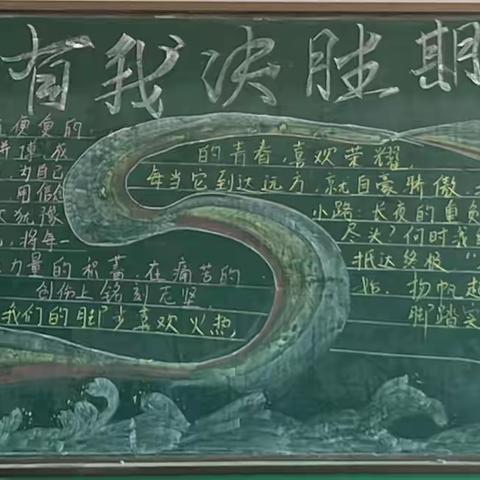 有我决胜期
便負的
拼搏成
为自己
用信念
犹豫
将每一
力量的积蓄,在痛苦的
创伤上铭刻无坚
我们的脚步喜欢火热,
的青春,喜欢荣耀,
每当它到达远方,就自豪骄傲,
小路:长夜的
尽头?何时我
抵达终极
始,扬帆起
脚踏实